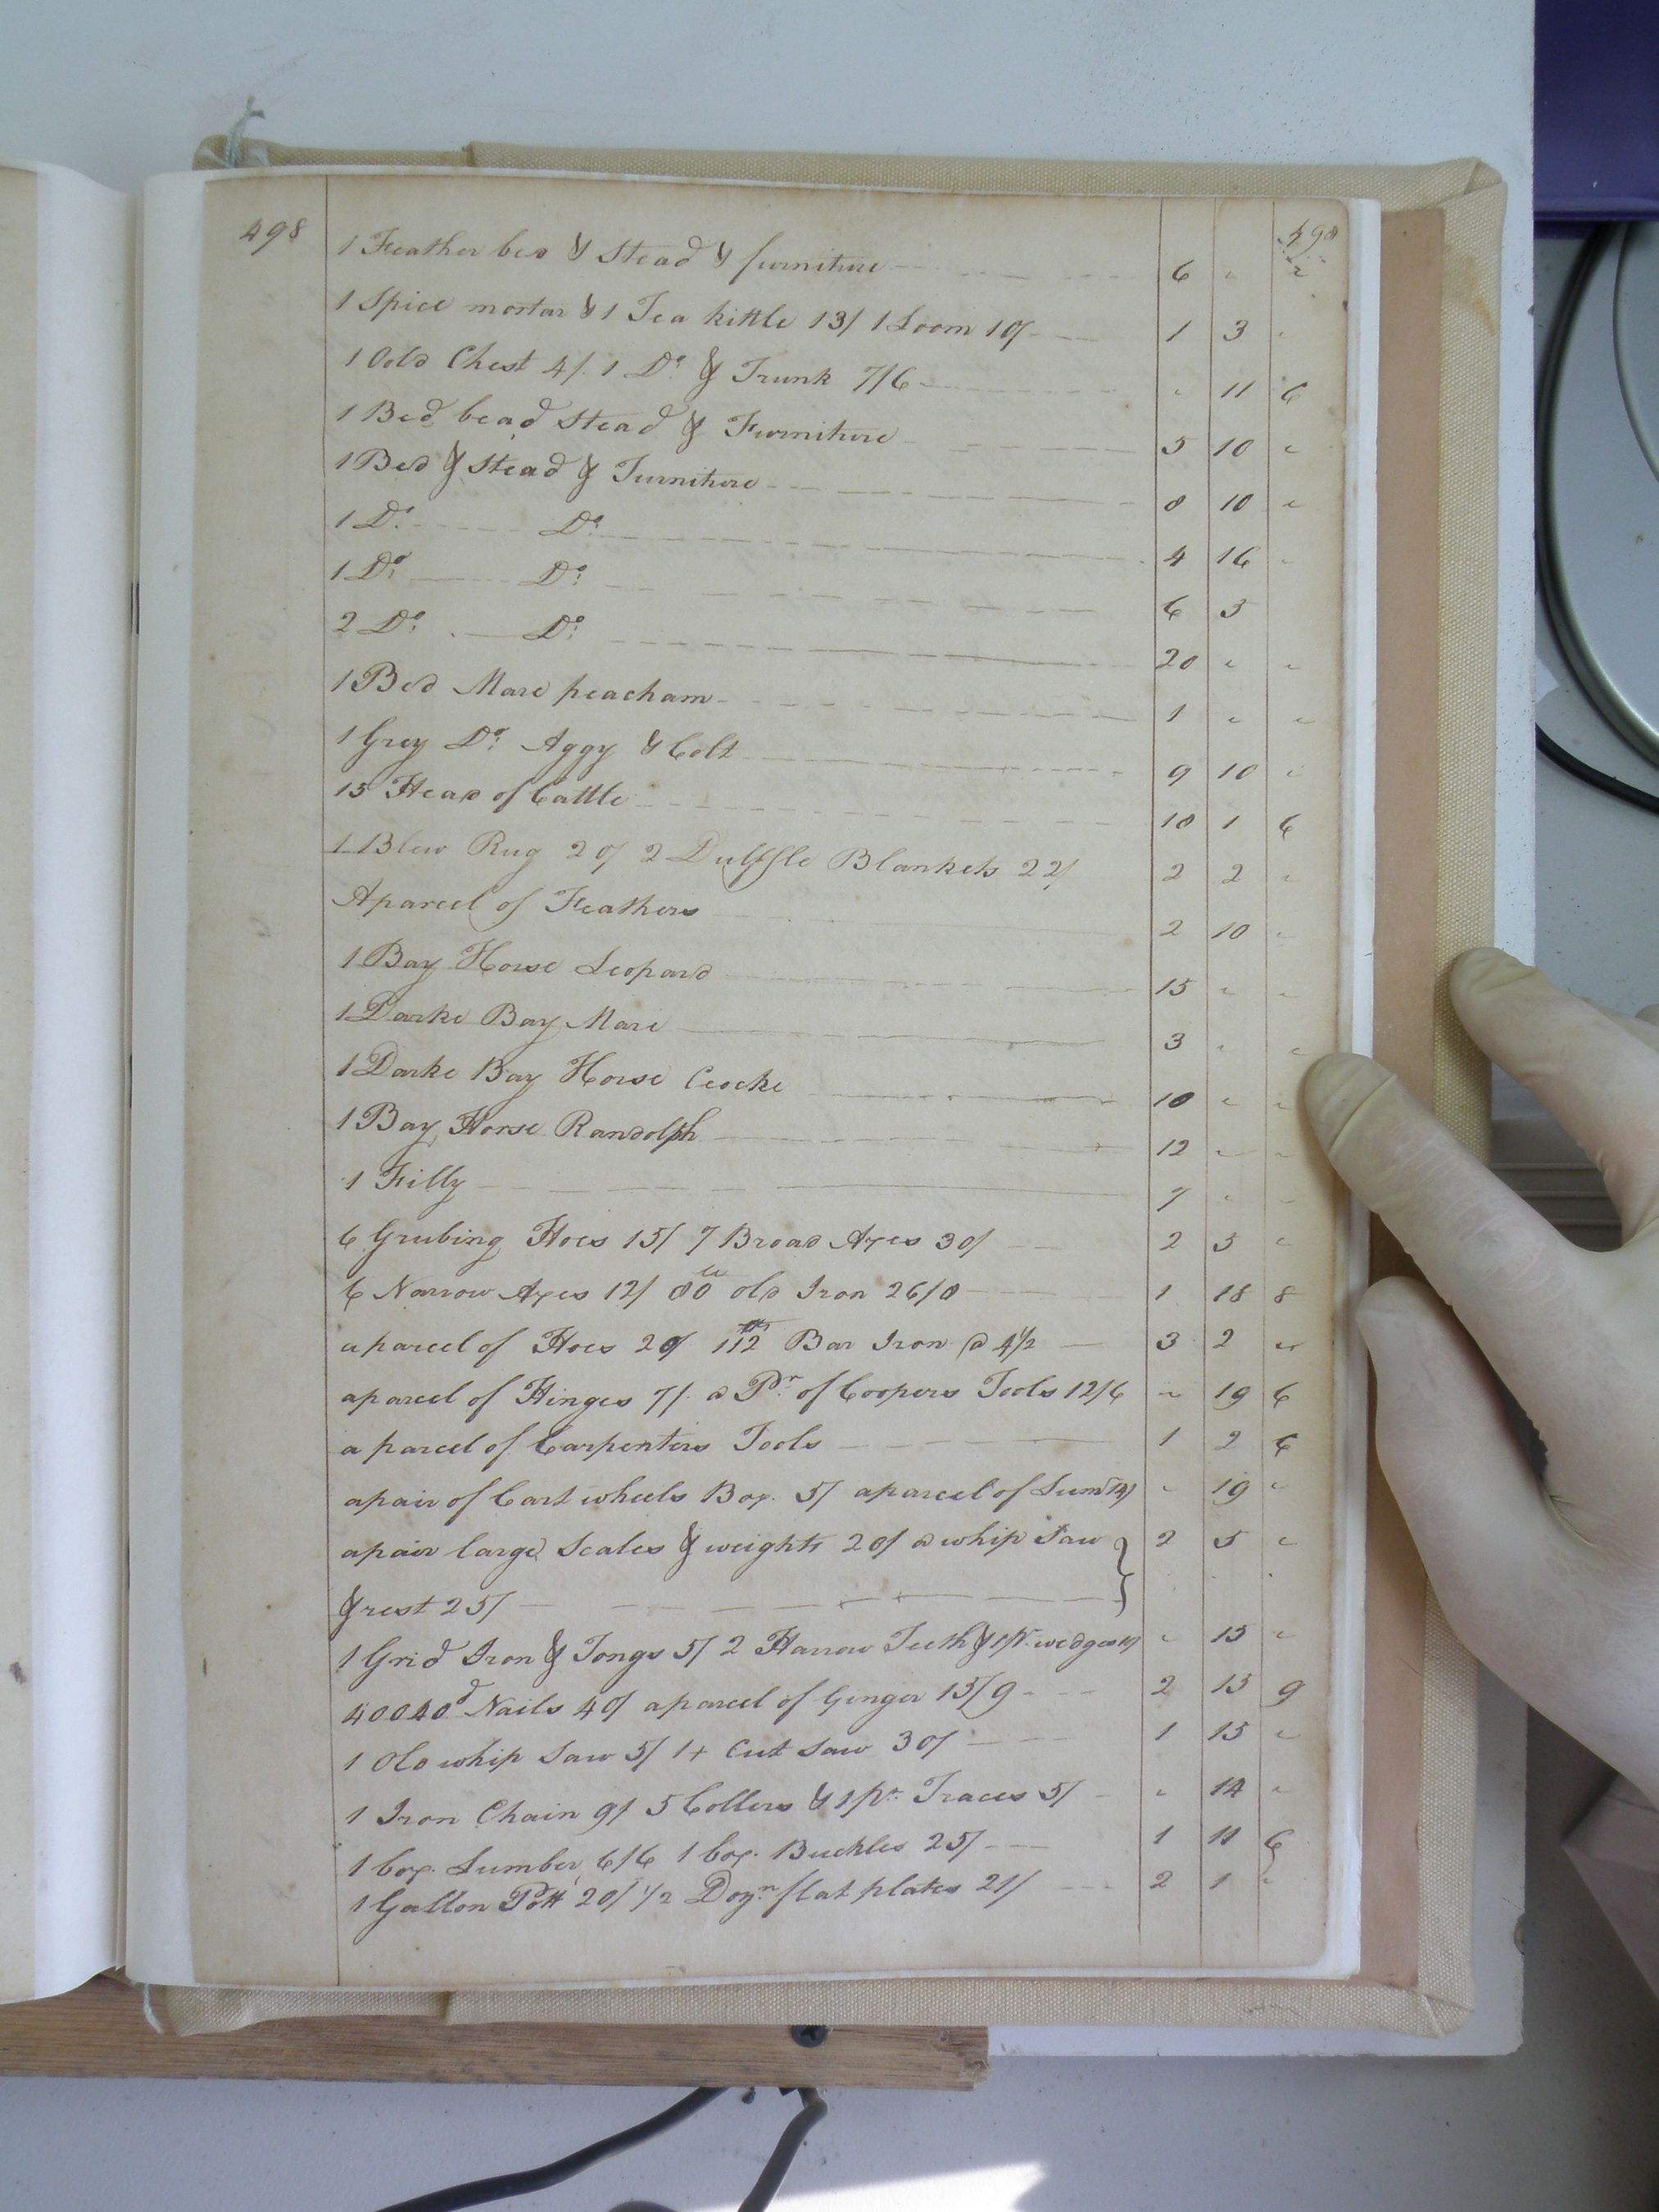 498 498
1 Feather bed & Stead & furniture 6 " "
1 Spice mortar & 1 Tea kittle 13/ 1 Loom 10/ 1 3 "
1 Oold Chest 4/. 1 Do. & Trunk 7/6 " 11 6
1 Bed bead Stead & Furniture 5 10 "
1 Bed & Stead & Furniture 8 10 "
1 Do. Do. 4 16 "
1 Do. Do. 6 5
2 Do. Do. 20 " "
1 Bed Mare peacham 1 " "
1 Grey Do. Aggy & Colt 9 10 "
15 Head of Cattle 10 1 6
1 Blew Rug 20/ 2 Dulffle Blankets 22/ 2 2 "
A parcel of Feathers 2 10 "
1 Bay Horse Leopard 15 " "
1 Darke Bay Mare 3 " "
1 Darke Bay Horse Crocke 10 " "
1 Bay Horse Randolph 12 " "
1 Filly 7 " "
6 Grubing Hoes 15/ 7 Broad Axes 30/ 2 5 "
6 Narrow Axes 12/ 80 old Iron 26/8 1 18 8
a parcel of Hoes 20/ 112 Bar Iron @ 4 1/2 3 2 "
a parcel of Hinges 7/. a Pr. of Coopers Tools 12/6 " 19 6
a parcel of Carpenters Tools 1 2 6
a pair of Cart wheels Box. 5/ a parcel of 14/ " 19 "
a pair large Scales & weights 20/ a whip Saw } 2 5 "
& rest 25/
1 Grid Iron & Tongs 5/ 2 Harrow Teeth & 1 pr. wedges 10/ " 15 "
400 40d Nails 40/ a parcel of Ginger 15/9 2 15 9
1 Old whip Saw 5/ 1 + Cut Saw 30/ 1 15 "
1 Iron Chain 9/ 5 Collers & 1 pr. Traces 5/ " 14 "
1 box. Lumber 6/6 1 box. Buckles 25/ 1 11 6
1 Gallon Pott 20/ 1/2 Dozn. flat plates 21/ 2 1 "